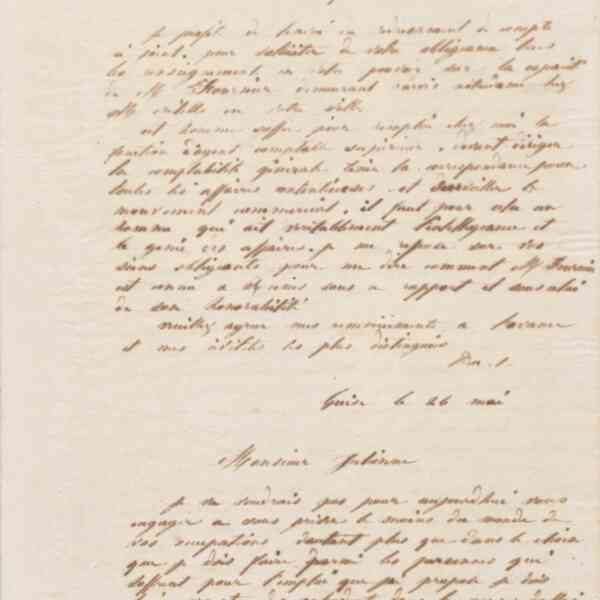 Je profite de l'envoi du
à pour solliciter de votre obligeance tous
les renseignements en votre pouvoir sur la capacité
de M. Fournier demeurant chez
M. en votre ville
cet homme s'offre pour remplir chez moi la
fonction d'agent comptable supérieur, devant diriger
la comptabilité générale tenir la correspondance pour
toutes les affaires contentieuses et surveiller le
mouvement commercial. il faut pour cela un
homme qui ait véritablement l'intelligence et
le génie des affaires. je me repose sur vos
soins obligeants pour me dire comment M. Fournier
est connu à sous ce rapport et sous celui
de son honorabilité
Veuillez agréer mes remerciements à l'avance
et mes civilités les plus distinguées
Guise le 26 mai
Monsieur Julienne
Je ne voudrais pas pour aujourd'hui vous
engager à vous priver le moins du monde de
vos occupations d'autant plus que dans le choix
que je dois faire parmi les personnes qui
s'offrent pour l'emploi que je propose je dois